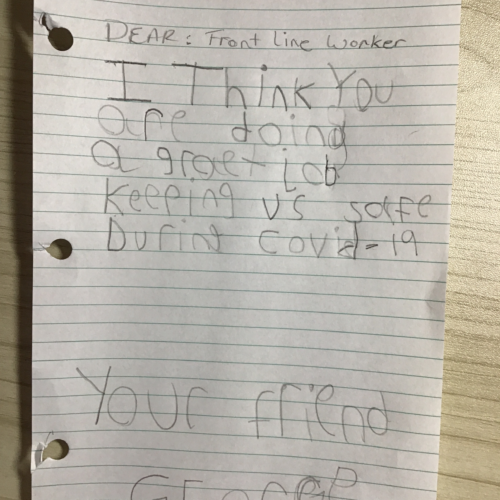 DEAR: Front Line Worker
I Think You
are doing
a graet job
Keeping us safe
During covid-19
Your friend